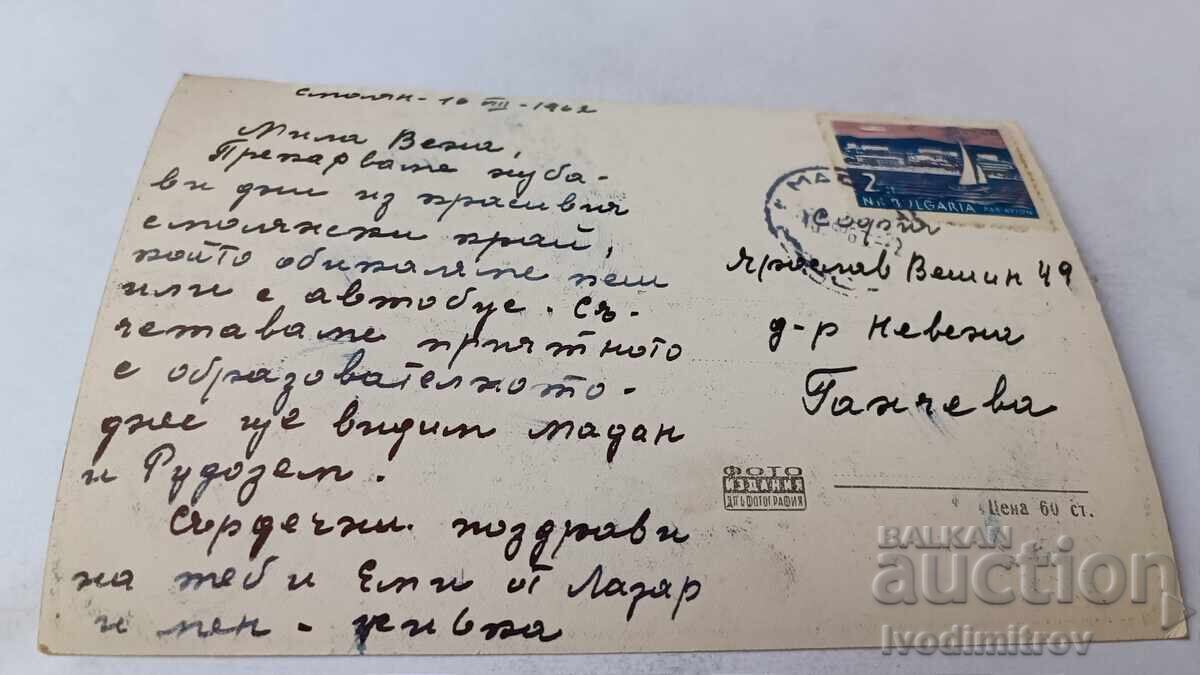 Смолян - 10 VIII - 1962
Мила Вена,
Прекарваме хуба-
ви дни из красивия
смолянски край,
който обикаляме пеш
или с автобус. Съ-
четаваме приятното
с образователното.
Днес ще видим Мадан
и Рудозем.
Сърдечни поздрави
на теб и Еми от Лазар
и мен -
2
N.R. BULGARIA PAR AVION
София
Ярослав Вешин 49
д-р Невена
Ганчева
ФОТО
ИЗДАНИЯ
ДП ФОТОГРАФИЯ
Цена 60 ст.
BALKAN
auction
Ivodimitrov